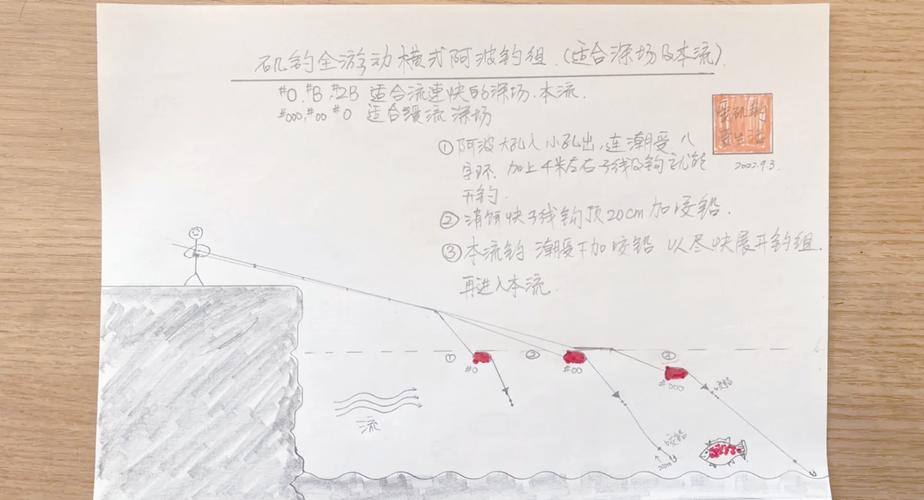 矶钓全游动横式阿波钓组.(适合深场及本流).
#0.#B.#2B 适合流速快的深场.本流.
#000,#00 #0 适合缓流深场
2022.9.3.
①阿波大孔入小孔出,连潮受、八
字环.加上4米左右子线及钩就能
开钓.
②消饵快子线钩顶20cm加咬铅.
③本流钓 潮受下加咬铅 以尽快展开钓组.
再进入本流.
① ② ③
#0 #00 #000
咬铅
流
咬铅
20cm